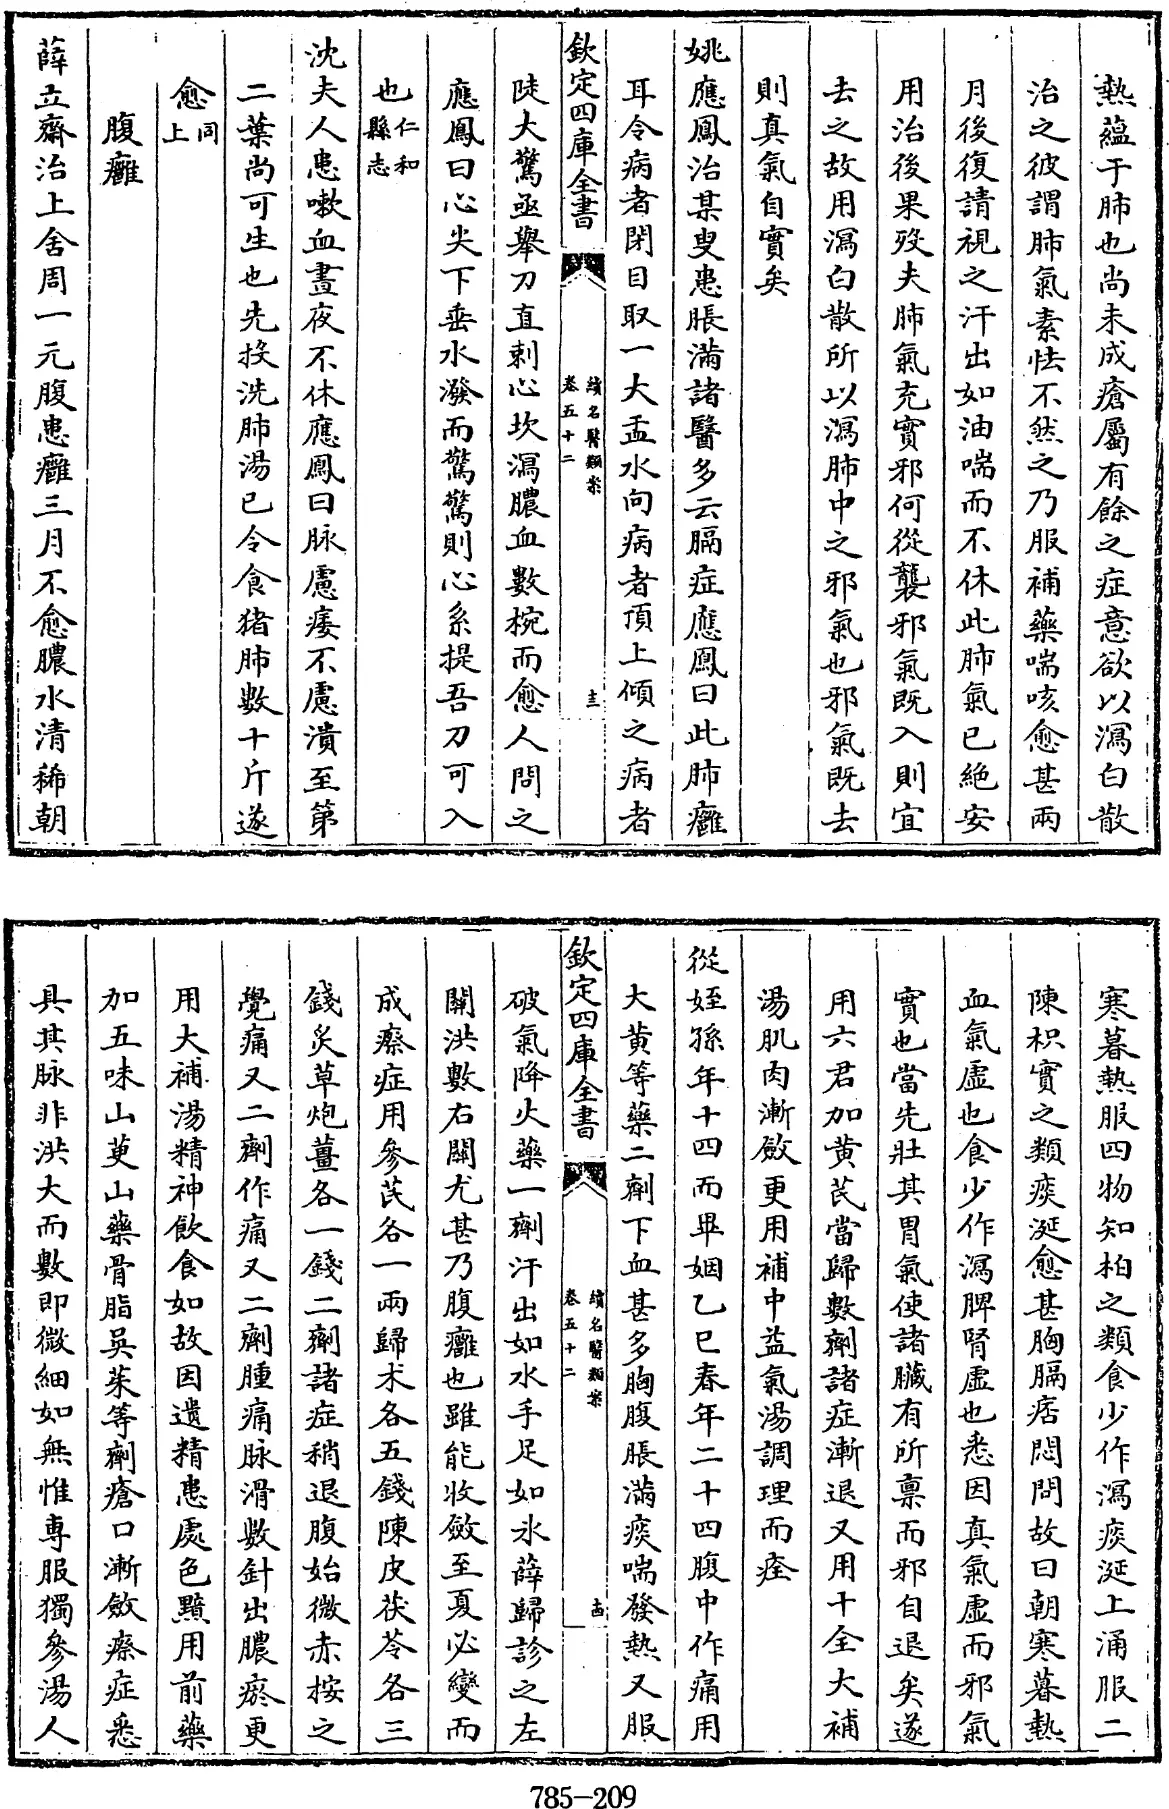 熱蘊于肺也尚未成瘡屬有餘之症意欲以瀉白散
治之彼謂肺氣素怯不然之乃服補藥喘咳愈甚兩
月後復請視之汗出如油喘而不休此肺氣已絶安
用治後果歿夫肺氣充實邪何從襲邪氣既入則宜
去之故用瀉白散所以瀉肺中之邪氣也邪氣既去
則真氣自實矣
姚應鳳治某叟患脹滿諸醫多云膈症應鳳曰此肺癰
耳令病者閉目取一大盂水向病者頂上傾之病者
欽定四庫全書
續名醫類案
卷五十二
十三
陡大驚亟舉刀直刺心坎瀉膿血數椀而愈人問之
應鳳曰心尖下垂水潑而驚驚則心系提吾刀可入
也仁和縣志
沈夫人患嗽血晝夜不休應鳳曰脉慮痿不慮潰至第
二葉尚可生也先投洗肺湯已令食猪肺數十斤遂
愈同上
腹癰
薛立齋治上舍周一元腹患癰三月不愈膿水清稀朝
寒暮熱服四物知柏之類食少作瀉痰涎上涌服二
陳枳實之類痰涎愈甚胸膈痞悶問故曰朝寒暮熱
血氣虚也食少作瀉脾腎虚也悉因真氣虚而邪氣
實也當先壯其胃氣使諸臟有所禀而邪自退矣遂
用六君加黄芪當歸數劑諸症漸退又用十全大補
湯肌肉漸斂更用補中益氣湯調理而痊
從姪孫年十四而畢姻乙巳春年二十四腹中作痛用
大黄等藥二劑下血甚多胸腹脹滿痰喘發熱又服
欽定四庫全書
續名醫類案
卷五十二
十四
破氣降火藥一劑汗出如水手足如氷薛歸診之左
關洪數右關尤甚乃腹癰也雖能收斂至夏必變而
成瘵症用參芪各一兩歸术各五錢陳皮茯苓各三
錢炙草炮薑各一錢二劑諸症稍退腹始微赤按之
覺痛又二劑作痛又二劑腫痛脉滑數針出膿瘀更
用大補湯精神飲食如故因遺精患處色黯用前藥
加五味山萸山藥骨脂吳茱等劑瘡口漸斂瘵症悉
具其脉非洪大而數即微細如無惟專服獨參湯人
785-209